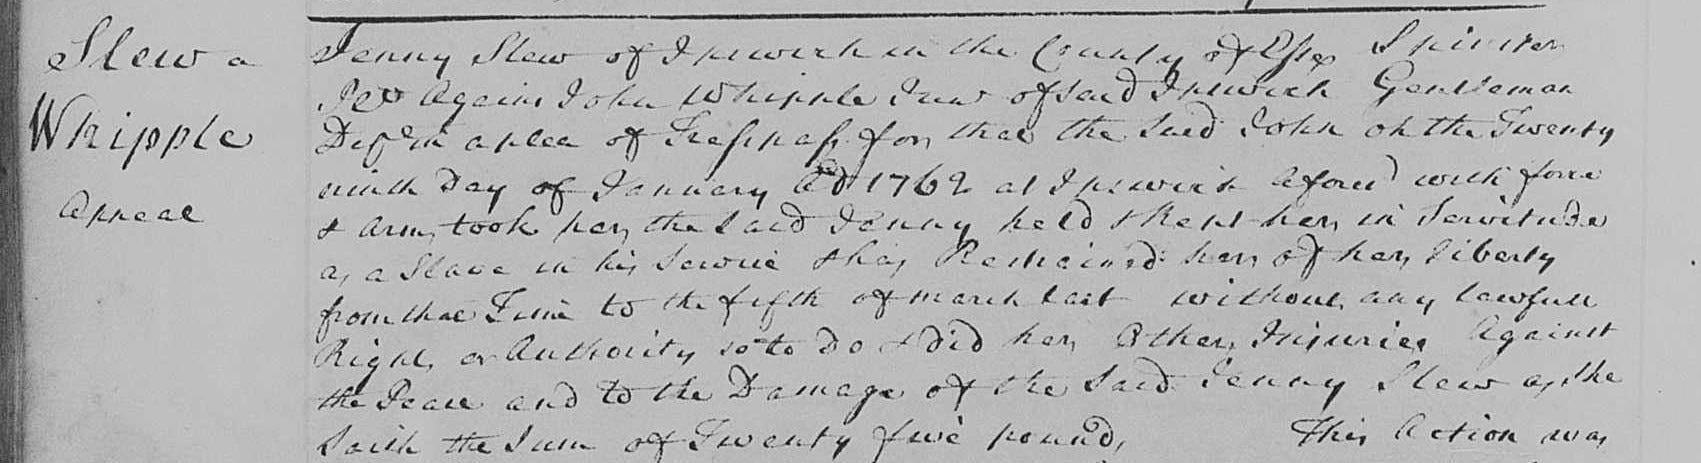 Slew a
Whipple
Appeal
Jenny Slew of Ipswich in the County of Essex Spinster
Against John Whipple Junr of said Ipswich Gentleman
Deft in a plea of Trespass for that the said John on the Twenty
ninth Day of January AD 1762 at Ipswich aforesd with force
& arms took her, the said Jenny held & kept her in Servitude
as a Slave in his Service & has Restrained her of her liberty
from that Time to the fifth of march last without any lawfull
Right or Authority so to do & did her Other Injuries Against
the Peace and to the Damage of the said Jenny Slew as she
saith the Sum of Twenty five pounds, This Action was